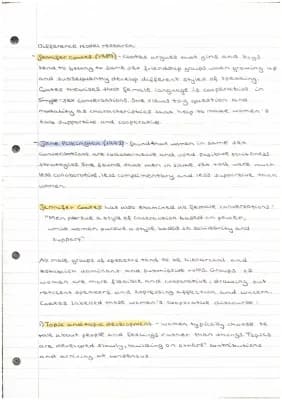 Difference model research
Jennifer Coates (1989) - Coates argues that girls and boys
tend to belong to same sex friendship groups when growing up
and subsequently develop different styles of speaking.
Coates theorised that female language is cooperative in
single-sex conversations. She views tag question and
modality as characteristics that help to make women's
talk supportive and cooperative.
Jane Pilkington (1992) - found that women in same sex
conversations are collaborative and used positive politeness
strategies. She found that men in same sex talk were much
less collaborative, less complimentary and less supportive than
women.
Jennifer Coates has also examined all female conversations:
"Men pursue a style of interaction based on power,
while women pursue a style based on solidarity and
support"
All male groups of speakers tend to be hierarchical and
establish dominant and submissive roles. Groups of
women are more flexible and cooperative: drawing out
reticent speakers and expressing affection and concern.
Coates likened these women's cooperative discourse:
1) Topic and topic development - women typically choose to
talk about people and feelings rather than things. Topics
are developed slowly, building on others' contributions
and arriving at consensus.